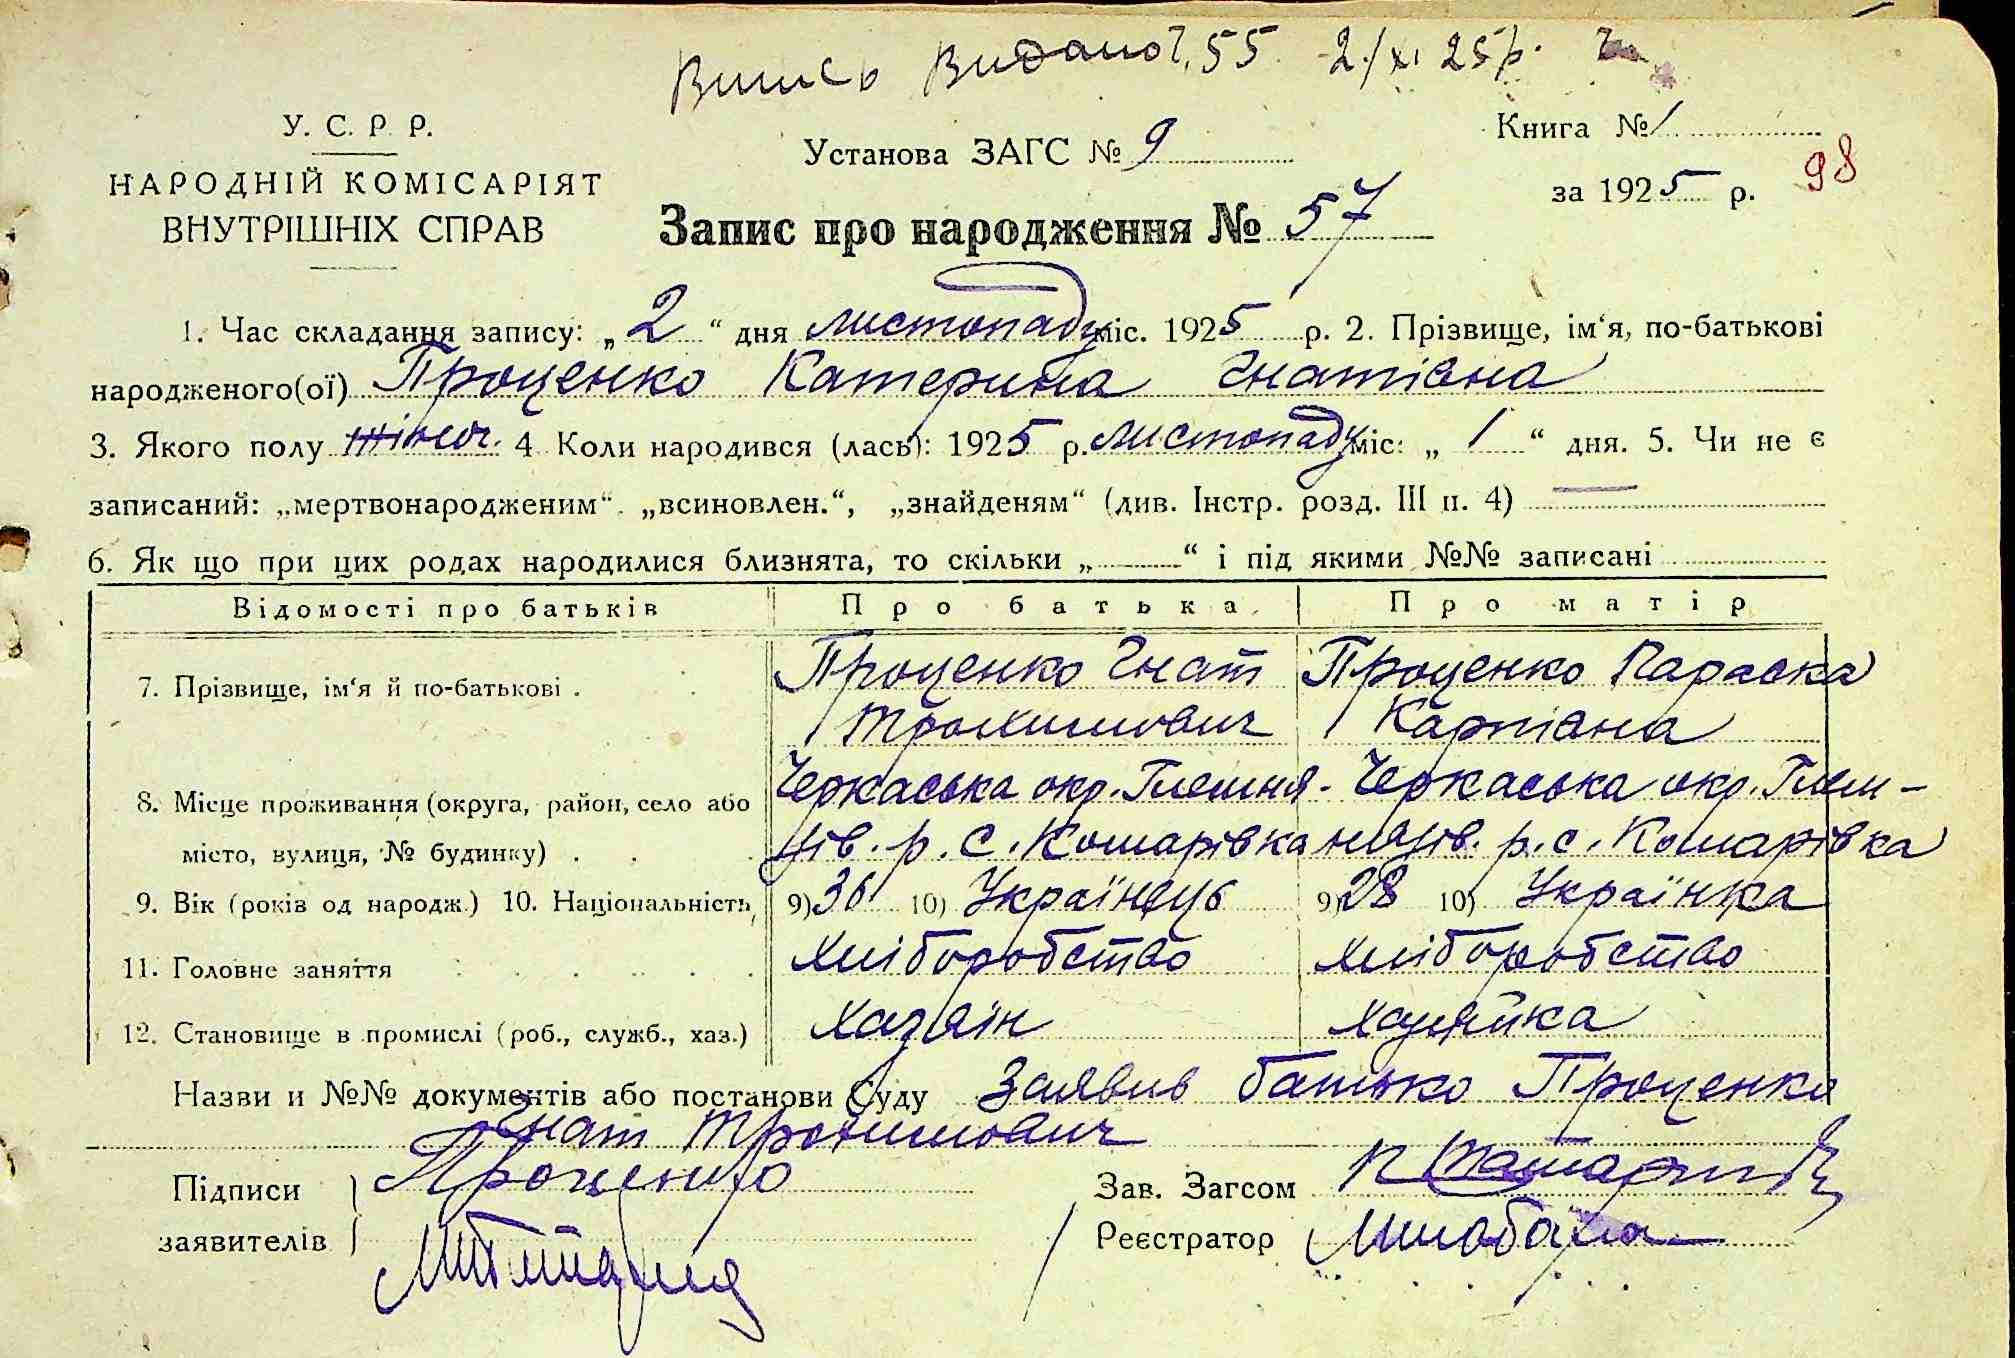 Випись Видано 55 2/XI 25 р.
У. С. Р. Р.
НАРОДНІЙ КОМІСАРІЯТ
ВНУТРІШНІХ СПРАВ
Установа ЗАГС № 9
Книга № 1
за 1925 р. 98
Запис про народження № 57
1. Час складання запису: „2“ дня листопаду міс. 1925 р. 2. Прізвище, ім‘я, по-батькові
народженого(ої) Проценко Катерина Гнатівна
3. Якого полу жіноч. 4 Коли народився (лась): 1925 р. листопаду міс: „1“ дня. 5. Чи не є
записаний: „мертвонародженим“. „всиновлен.“, „знайденям“ (див. Інстр. розд. III п. 4) —
6. Як що при цих родах народилися близнята, то скільки „ “ і під якими №№ записані
Відомості про батьків Про батька. Про матір
7. Прізвище, ім‘я й по-батькові . Проценко Гнат Проценко Параска
Трохимович Карпівна
8. Місце проживання (округа, район, село або Черкаська окр. Глемня- Черкаська окр. Глем-
місто, вулиця, № будинку) . ців. р. с. Комарівка няців. р. с. Комарівка
9. Вік (років од народж.) 10. Національність 9) 36 10) Українець 9) 28 10) Українка
11. Головне заняття хліборобство хліборобство
12. Становище в промислі (роб., служб., хаз.) хазяїн хазяйка
Назви и №№ документів або постанови Суду Заявив батько Проценко
Гнат Трохимович
Підписи Проценко Зав. Загсом
заявителів Реєстратор